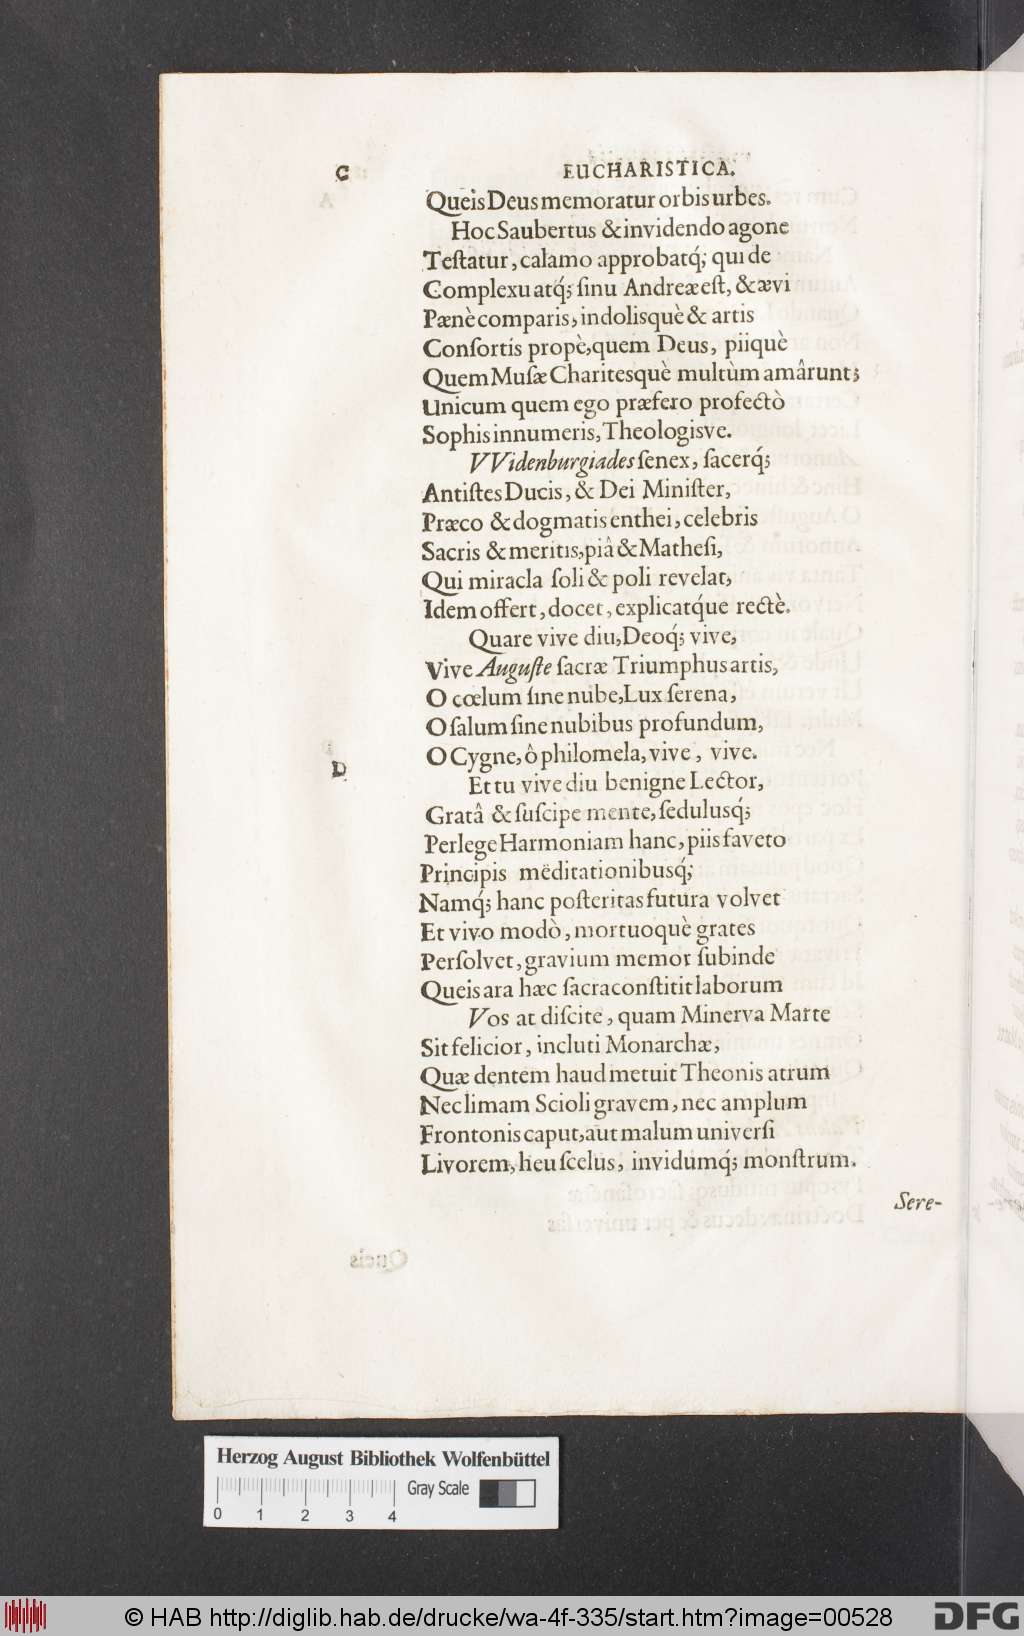 C EUCHARISTICA.
Queis Deus memoratur orbis urbes.
Hoc Saubertus & invidendo agone
Teſtatur, calamo approbatq́; qui de
Complexu atq́; ſinu Andreæ eſt, & ævi
Pænè comparis, indolisquè & artis
Conſortis propè, quem Deus, piiquè
Quem Muſæ Charitesquè multùm amârunt;
Unicum quem ego præfero profectò
Sophis innumeris, Theologisve.
VVidenburgiades ſenex, ſacerq́;
Antiſtes Ducis, & Dei Miniſter,
Præco & dogmatis enthei, celebris
Sacris & meritis, piâ & Matheſi,
Qui miracla ſoli & poli revelat,
Idem offert, docet, explicatq́ue rectè.
Quare vive diu, Deoq́; vive,
Vive Auguſte ſacræ Triumphus artis,
O cœlum ſine nube, Lux ſerena,
O ſalum ſine nubibus profundum,
O Cygne, ô philomela, vive, vive.
D
Et tu vive diu benigne Lector,
Gratâ & ſuſcipe mente, ſedulusq́;
Perlege Harmoniam hanc, piis faveto
Principis mëditationibusq́;
Namq́; hanc poſteritas futura volvet
Et vivo modò, mortuoquè grates
Perſolvet, gravium memor ſubinde
Queis ara hæc ſacra conſtitit laborum
Vos at diſcite, quam Minerva Marte
Sit felicior, incluti Monarchæ,
Quæ dentem haud metuit Theonis atrum
Nec limam Scioli gravem, nec amplum
Frontonis caput, aut malum univerſi
Livorem, heu ſcelus, invidumq́; monſtrum.
Sere-
Herzog August Bibliothek Wolfenbüttel
Gray Scale
0 1 2 3 4
© HAB http://diglib.hab.de/drucke/wa-4f-335/start.htm?image=00528
DFG